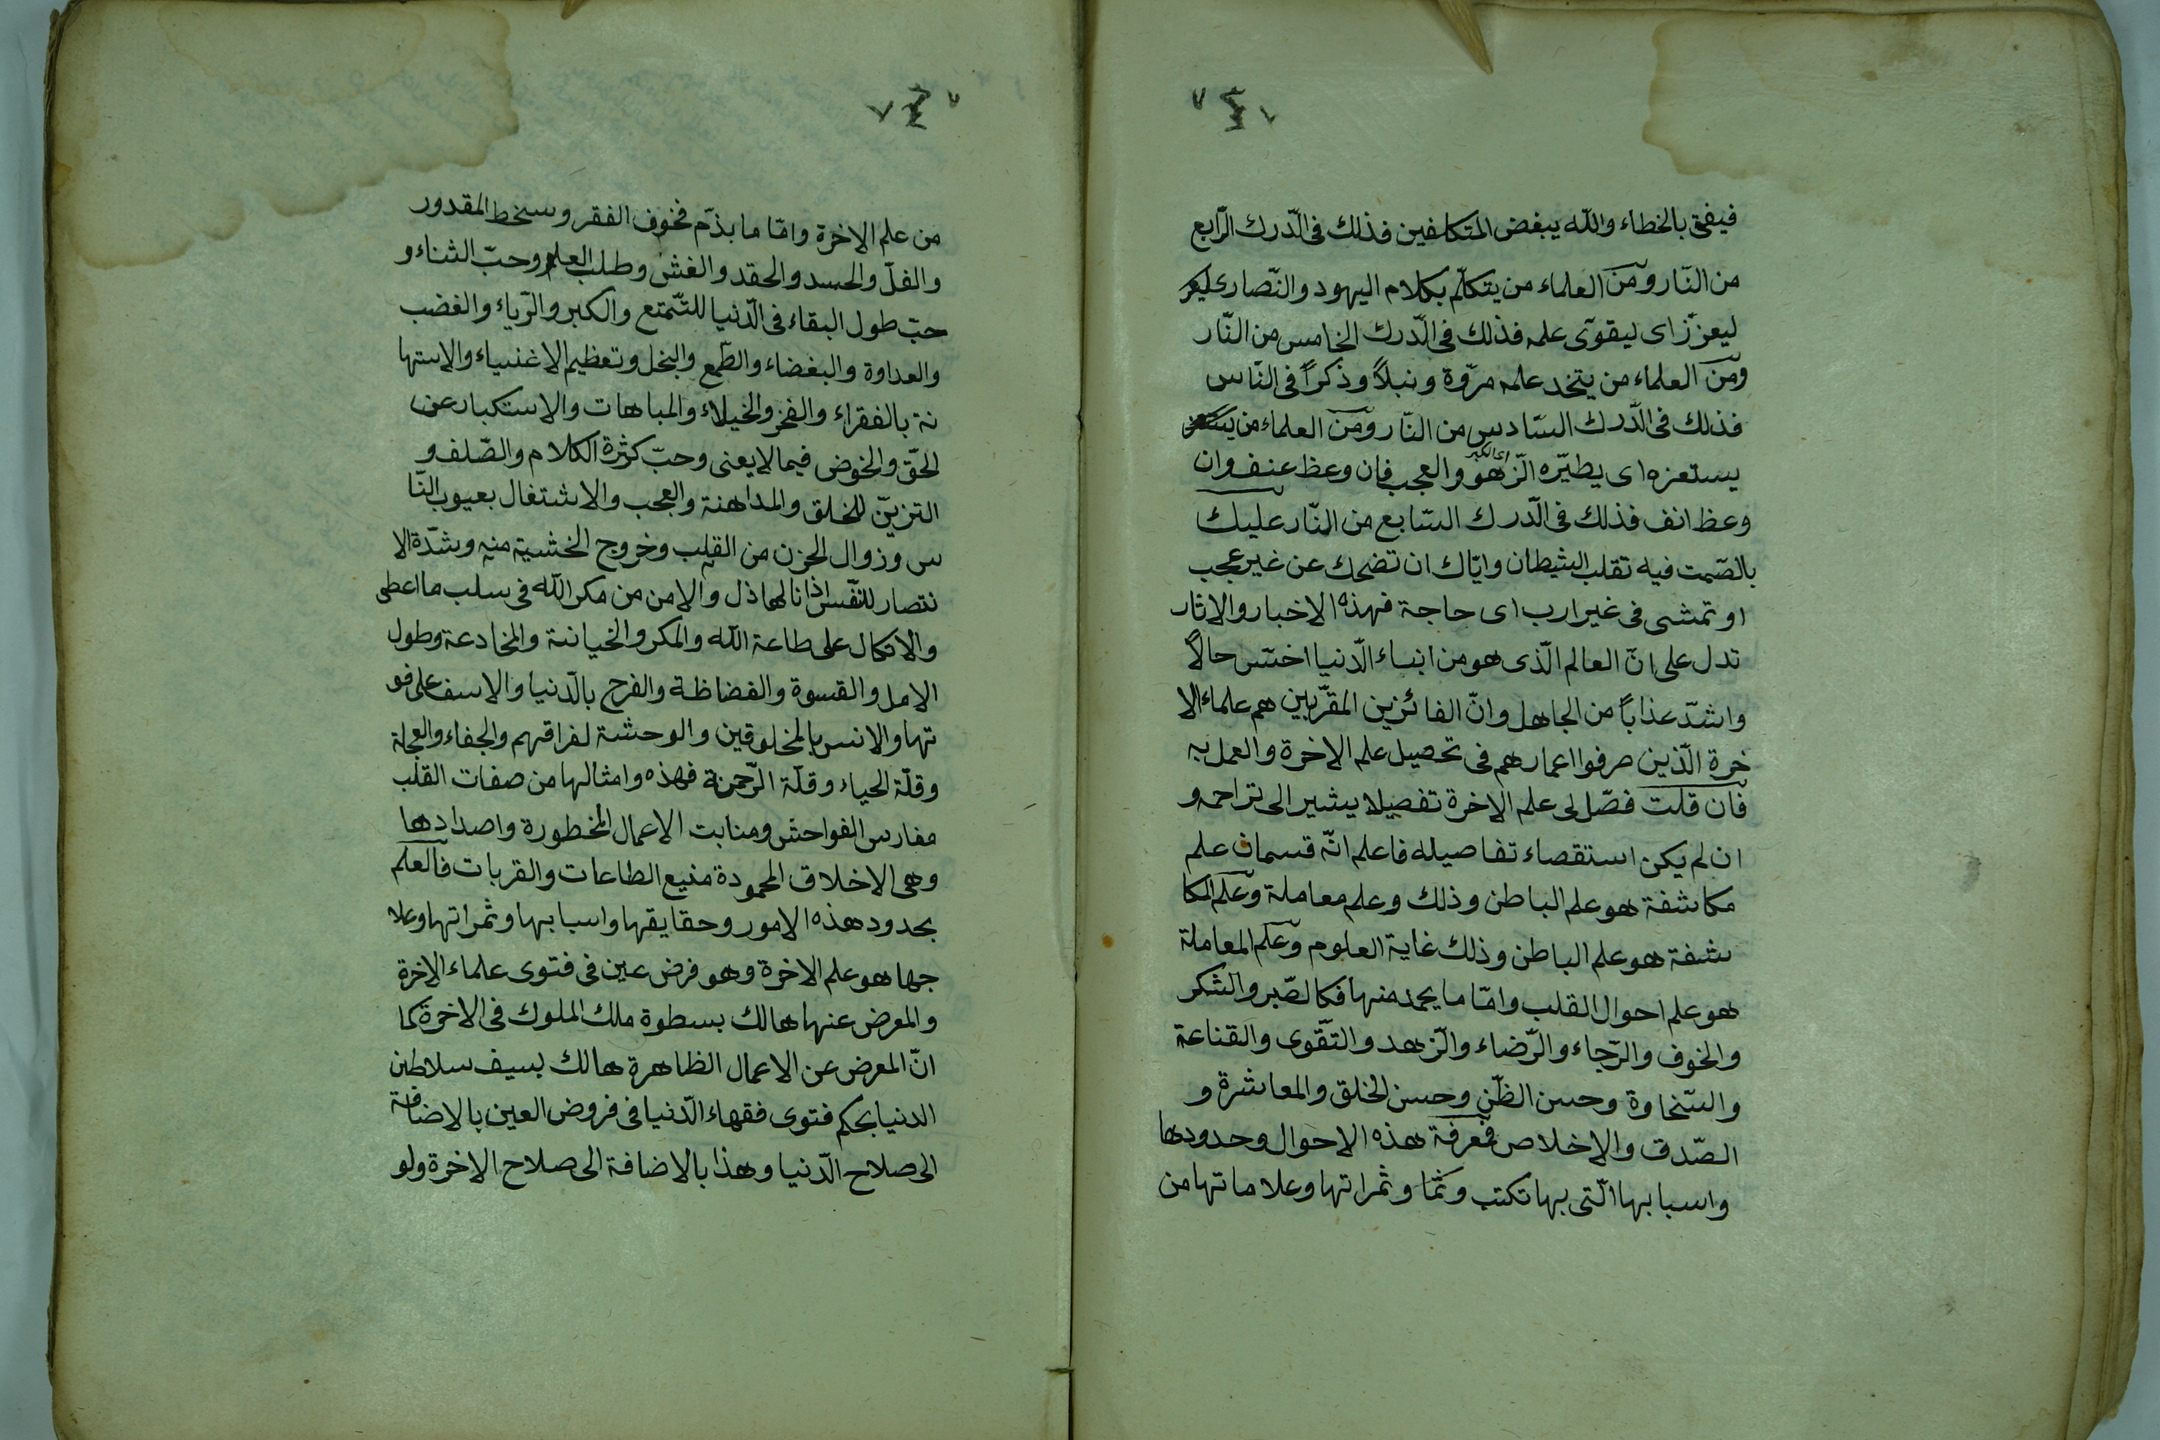 فيفتى بالخطاء والله يبغض المتكلفين فذلك فى الدّرك الرّابع
من النّار ومن العلماء من يتكلّم بكلام اليهود والنّصارى
ليعزّز اى ليقوّى علمه فذلك فى الدّرك الخامس من النّار
ومن العلماء من يتخد علمه مروّة ونبلاً وذكراً فى النّاس
فذلك فى الدّرك السّادس من النّار ومن العلماء من
يستعزه اى يطيّره الزّهو اى الكبر والعجب فان وعظ عنف وان
وعظ انف فذلك فى الدّرك السّابع من النّار عليك
بالصّمت فيه تقلب الشيطان وايّاك ان تضحك عن غير عجب
او تمشى فى غير ارب اى حاجة فهذه الاخبار والاثار
تدل على انّ العالم الّذى هو من ابناء الدّنيا اخسّ حالاً
واشدّ عذاباً من الجاهل وانّ الفائزين المقرّبين هم علماء الا
خرة الّذين صرفوا اعمارهم فى تحصيل علم الاخرة والعمل به
فان قلت فصّل لى علم الاخرة تفصيلا يشير الى تراجمه و
ان لم يكن استقصاء تفاصيله فاعلم انّه قسمان علم
مكاشفة هو علم الباطن وذلك وعلم معاملة وعلم المكا
شفة هو علم الباطن وذلك غاية العلوم وعلم المعاملة
هو علم احوال القلب وامّا ما يحمد منها فكالصّبر والشكر
والخوف والرّجاء والرّضاء والزّهد والتّقوى والقناعة
والسّخاوة وحسن الظّن وحسن الخلق والمعاشرة و
الصّدق والاخلاص فمعرفة هذه الاحوال وحدودها
واسبابها الّتى بها تكتب وثمراتها وعلاماتها من
من علم الاخرة وامّا ما بذّم فخوف الفقر وسخط المقدور
والغلّ والحسد والحقد والغش وطلب العلو وحبّ الثناء و
حبّ طول البقاء فى الدّنيا للتّمتع والكبر والرّياء والغضب
والعداوة والبغضاء والطّمع والبخل وتعظيم الاغنياء والاستها
نة بالفقراء والفخر والخيلاء والمباهات والاستكبار عن
الحقّ والخوض فيما لا يعنى وحبّ كثرة الكلام والصّلف و
التزيّن للخلق والمداهنة والعجب والاشتغال بعيوب النّا
س وزوال الحزن من القلب وخروج الخشية منه وشدّة الا
نتصار للنّفس اذا نالها ذل والامن من مكر الله فى سلب ما اعطى
والاتكال على طاعة الله والمكر والخيانة والمخادعة وطول
الامل والقسوة والفضاظة والفرح بالدّنيا والاسف على فو
تها والانس بالمخلوقين والوحشة لفراقهم والجفاء والعجلة
وقلّة الحياء وقلّة الرّحمة فهذه وامثالها من صفات القلب
مغارس الفواحش ومنابت الاعمال المخطورة واضدادها
وهى الاخلاق المحمودة منبع الطاعات والقربات فالعلم
بحدود هذه الامور وحقايقها واسبابها وثمراتها وعلا
جها هو علم الاخرة وهو فرض عين فى فتوى علماء الاخرة
والمعرض عنها هالك بسطوة ملك الملوك فى الاخرة كما
انّ المعرض عن الاعمال الظاهرة هالك بسيف سلاطين
الدنيا بحكم فتوى فقهاء الدّنيا فى فروض العين بالاضافة
الى صلاح الدّنيا وهذا بالاضافة الى صلاح الاخرة ولو